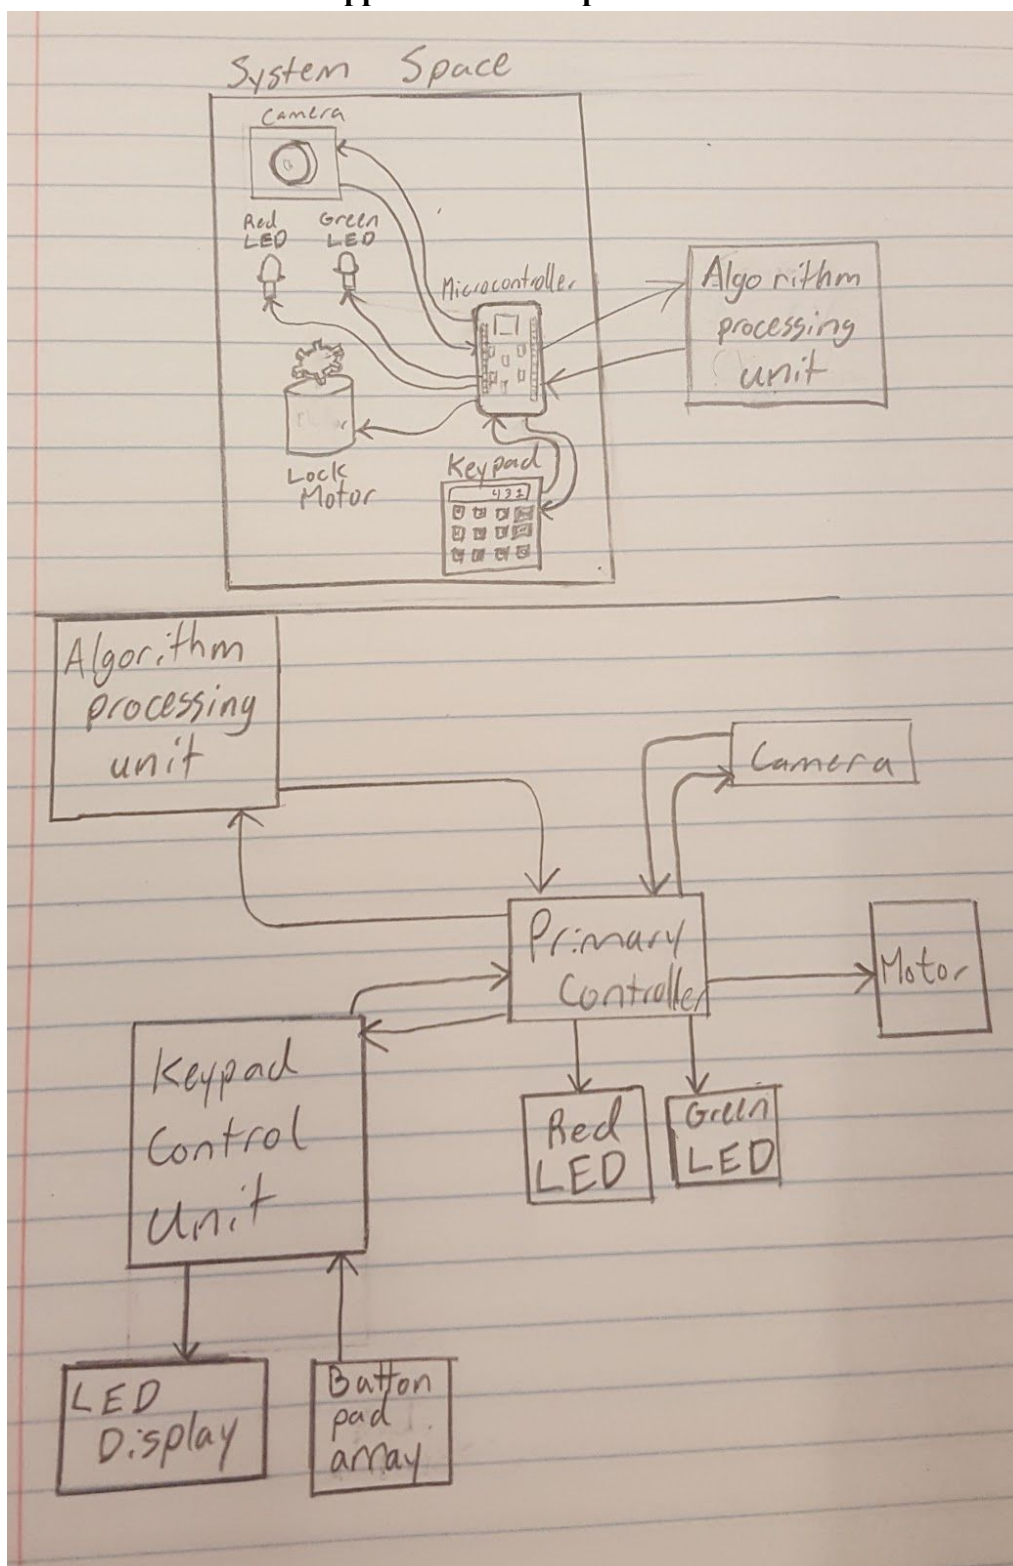 System Space
Camera
Red
LED
Green
LED
Microcontroller
Algorithm
processing
unit
Lock
Motor
Keypad
431
Algorithm
processing
unit
Camera
Primary
Controller
Motor
Keypad
Control
Unit
Red
LED
Green
LED
LED
Display
Button
pad
array